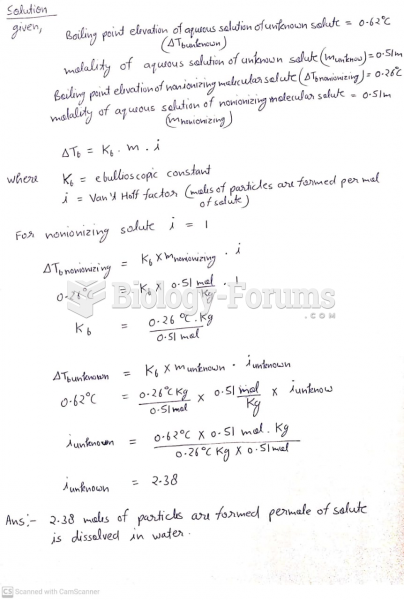 Solution
given, Boiling point elevation of aqueous solution of unknown solute = 0.62°C
(ΔTb unknown)
molality of aqueous solution of unknown solute (m unknow) = 0.51m
Boiling point elevation of nonionizing molecular solute (ΔTb nonionizing) = 0.26°C
molality of aqueous solution of nonionizing molecular solute = 0.51m
(m nonionizing)
ΔTb = Kb . m . i
where Kb = ebullioscopic constant
i = Van't Hoff factor (moles of particles are formed per mol
of solute)
For nonionizing solute i = 1
ΔTb nonionizing = Kb × m nonionizing . i
0.26°C = Kb × 0.51 mol/Kg . 1
Kb = 0.26 °C.Kg / 0.51 mol
Biology-Forums
.COM
ΔTb unknown = Kb × m unknown . i unknown
0.62°C = 0.26°C Kg / 0.51 mol × 0.51 mol / Kg × i unknow
i unknown = 0.62°C × 0.51 mol. Kg / 0.26°C Kg × 0.51 mol
i unknown = 2.38
Ans:- 2.38 moles of particles are formed permole of solute
is dissolved in water.
CS Scanned with CamScanner